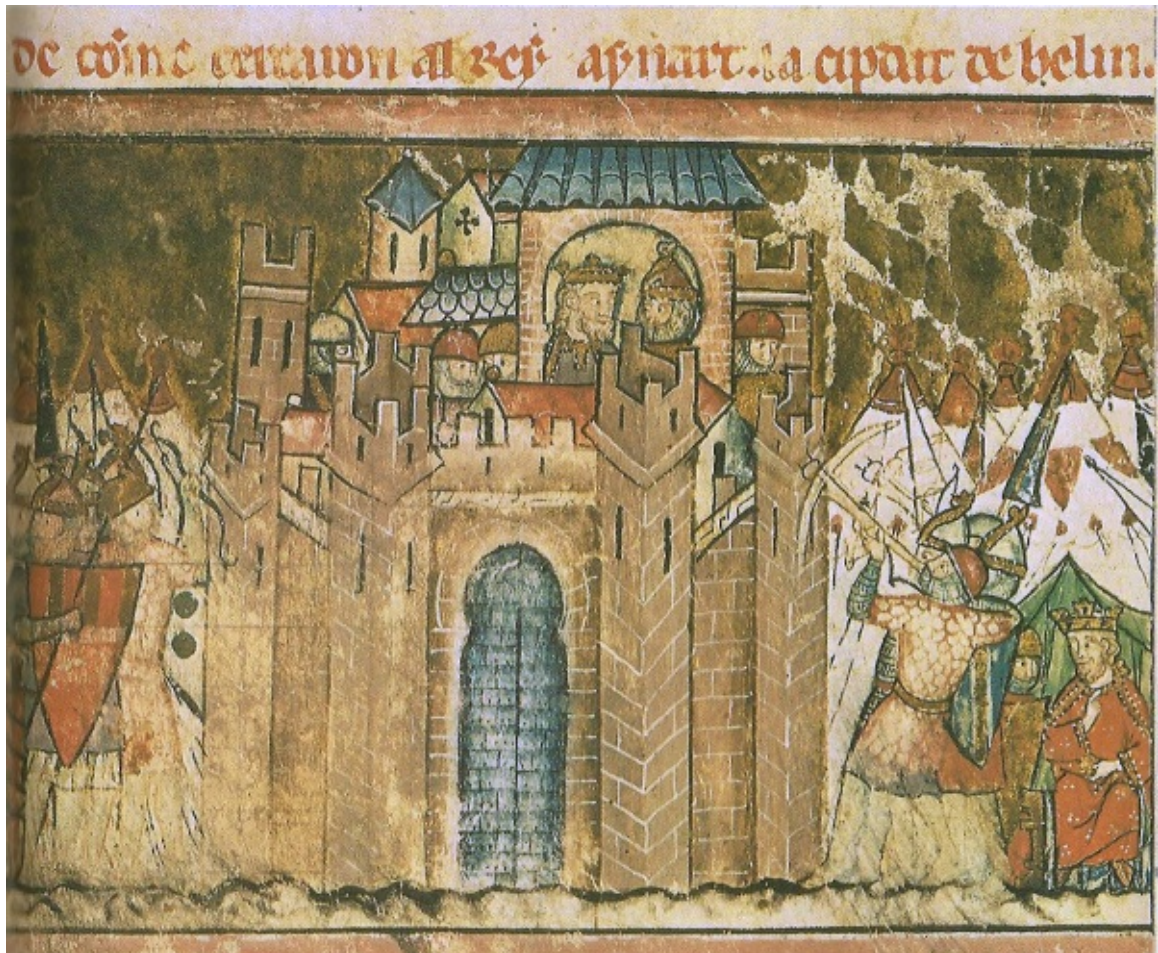 de com̃ cercaron al Rey asuart. la cipdat de belin.